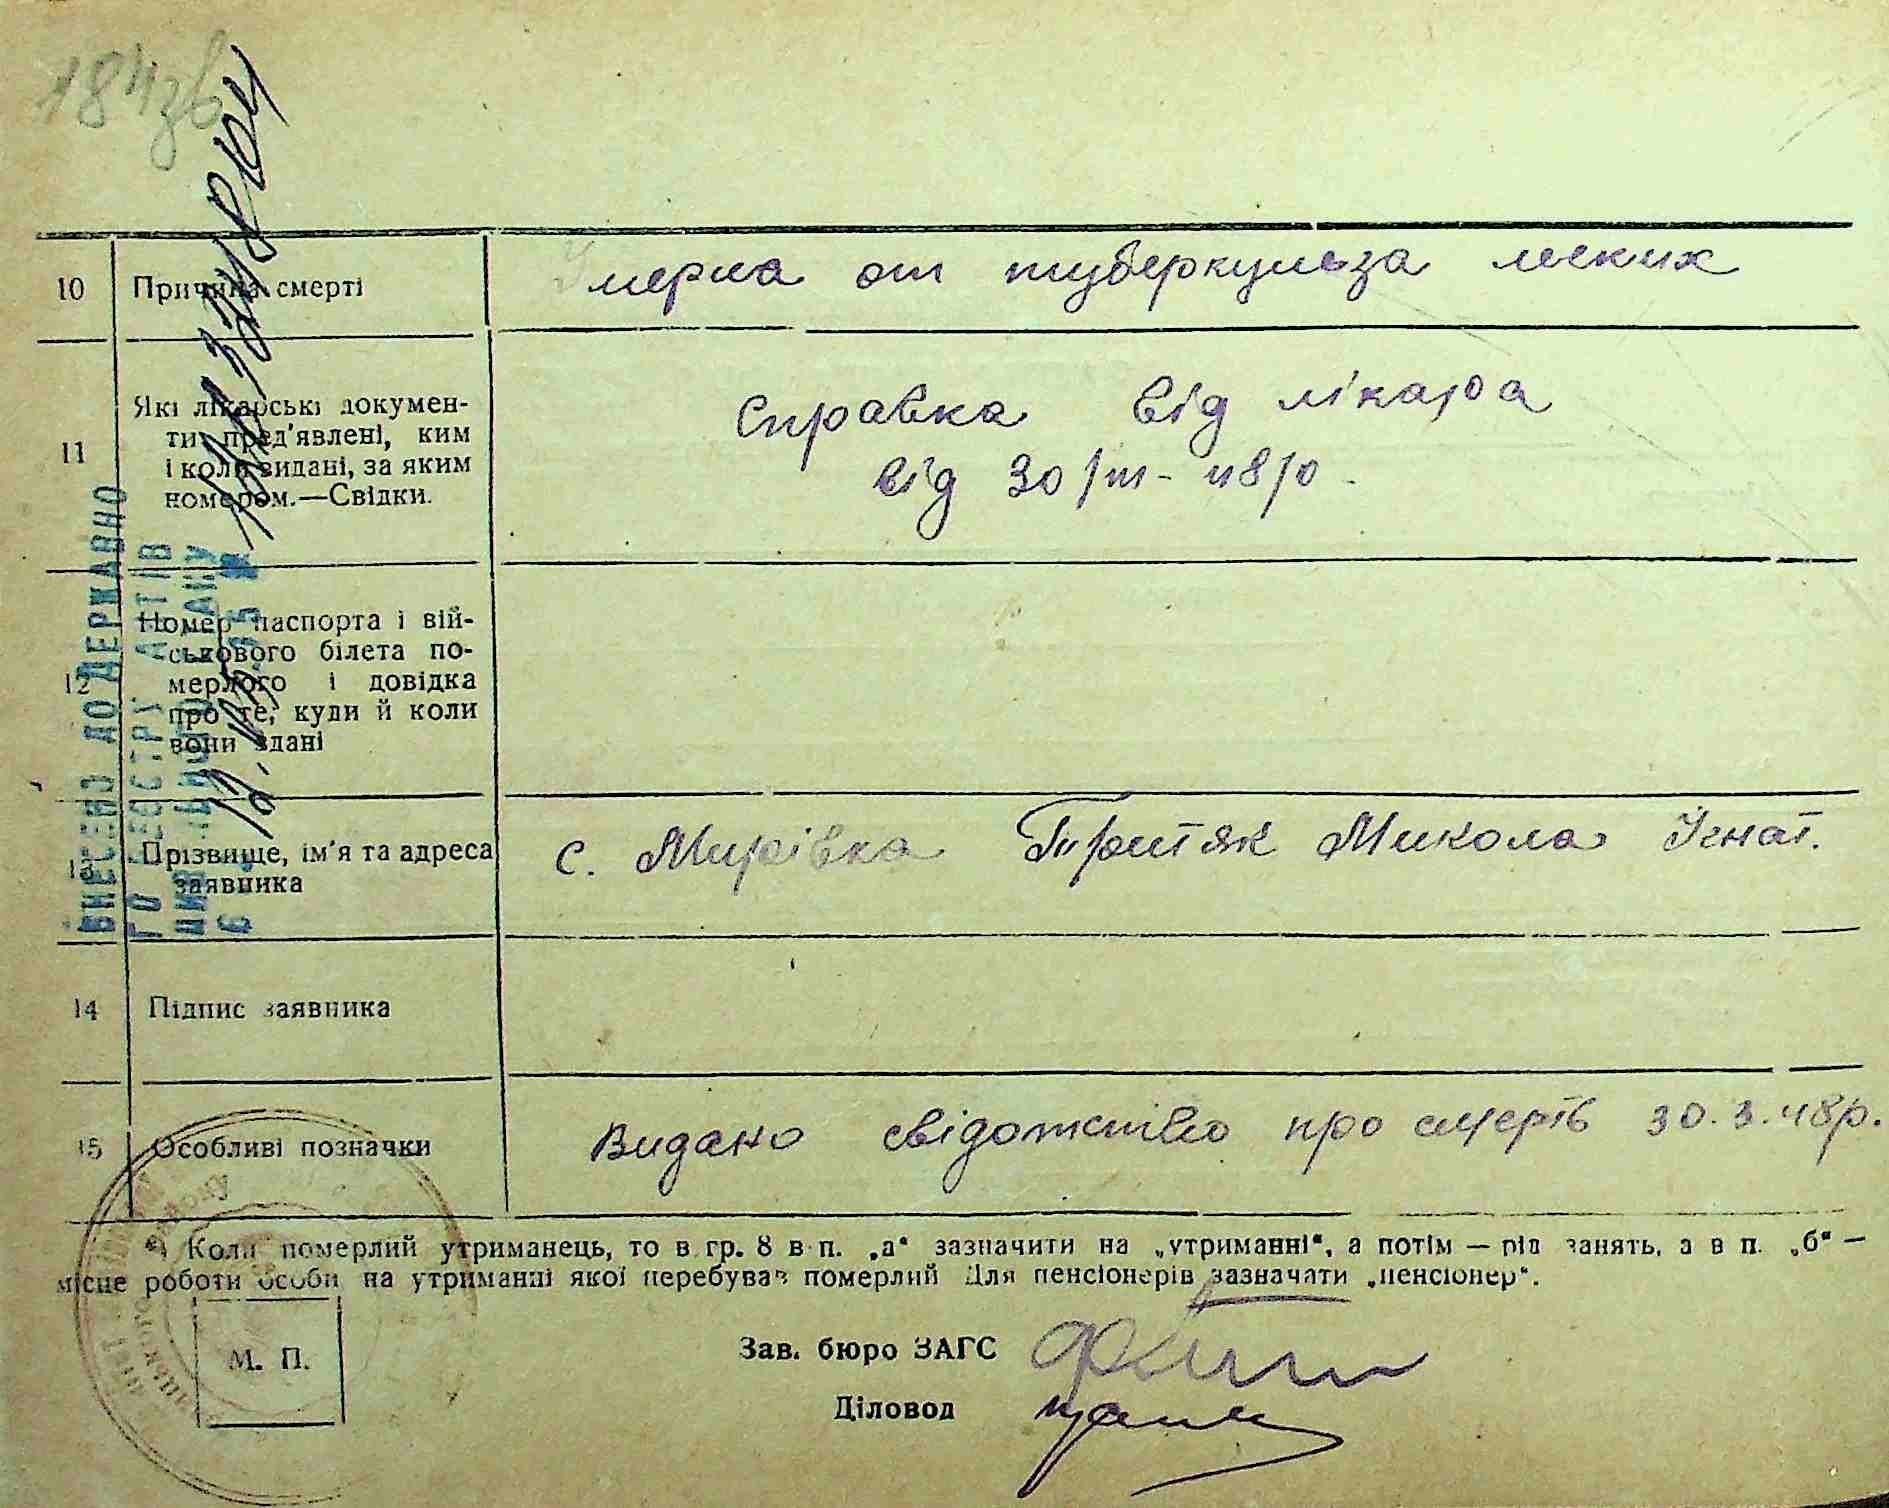 184зв
10 Причина смерті
Умерла от туберкульза легких
11 Які лікарські докумен-
ти пред'явлені, ким
і коли видані, за яким
номером.—Свідки.
Справка від лікара
від 30/III - 48 р.
12 Номер паспорта і вій-
ськового білета по-
мерлого і довідка
про те, куди й коли
вони здані
13 Прізвище, ім'я та адреса
заявника
с. Мирівка Третяк Микола Ігнат.
14 Підпис заявника
15 Особливі позначки
Видано свідотство про смерть 30.3.48р.
*) Коли померлий утриманець, то в гр. 8 в п. „а“ зазначити на „утриманні“, а потім — рід занять, а в п. „б“ —
місце роботи особи на утриманні якої перебував померлий Для пенсіонерів зазначати „пенсіонер“.
М. П.
Зав. бюро ЗАГС
Діловод
ВНЕСЕНО ДО ДЕРЖАВНО
ГО РЕЄСТРУ АКТІВ
ЦИВІЛЬНОГО СТАНУ